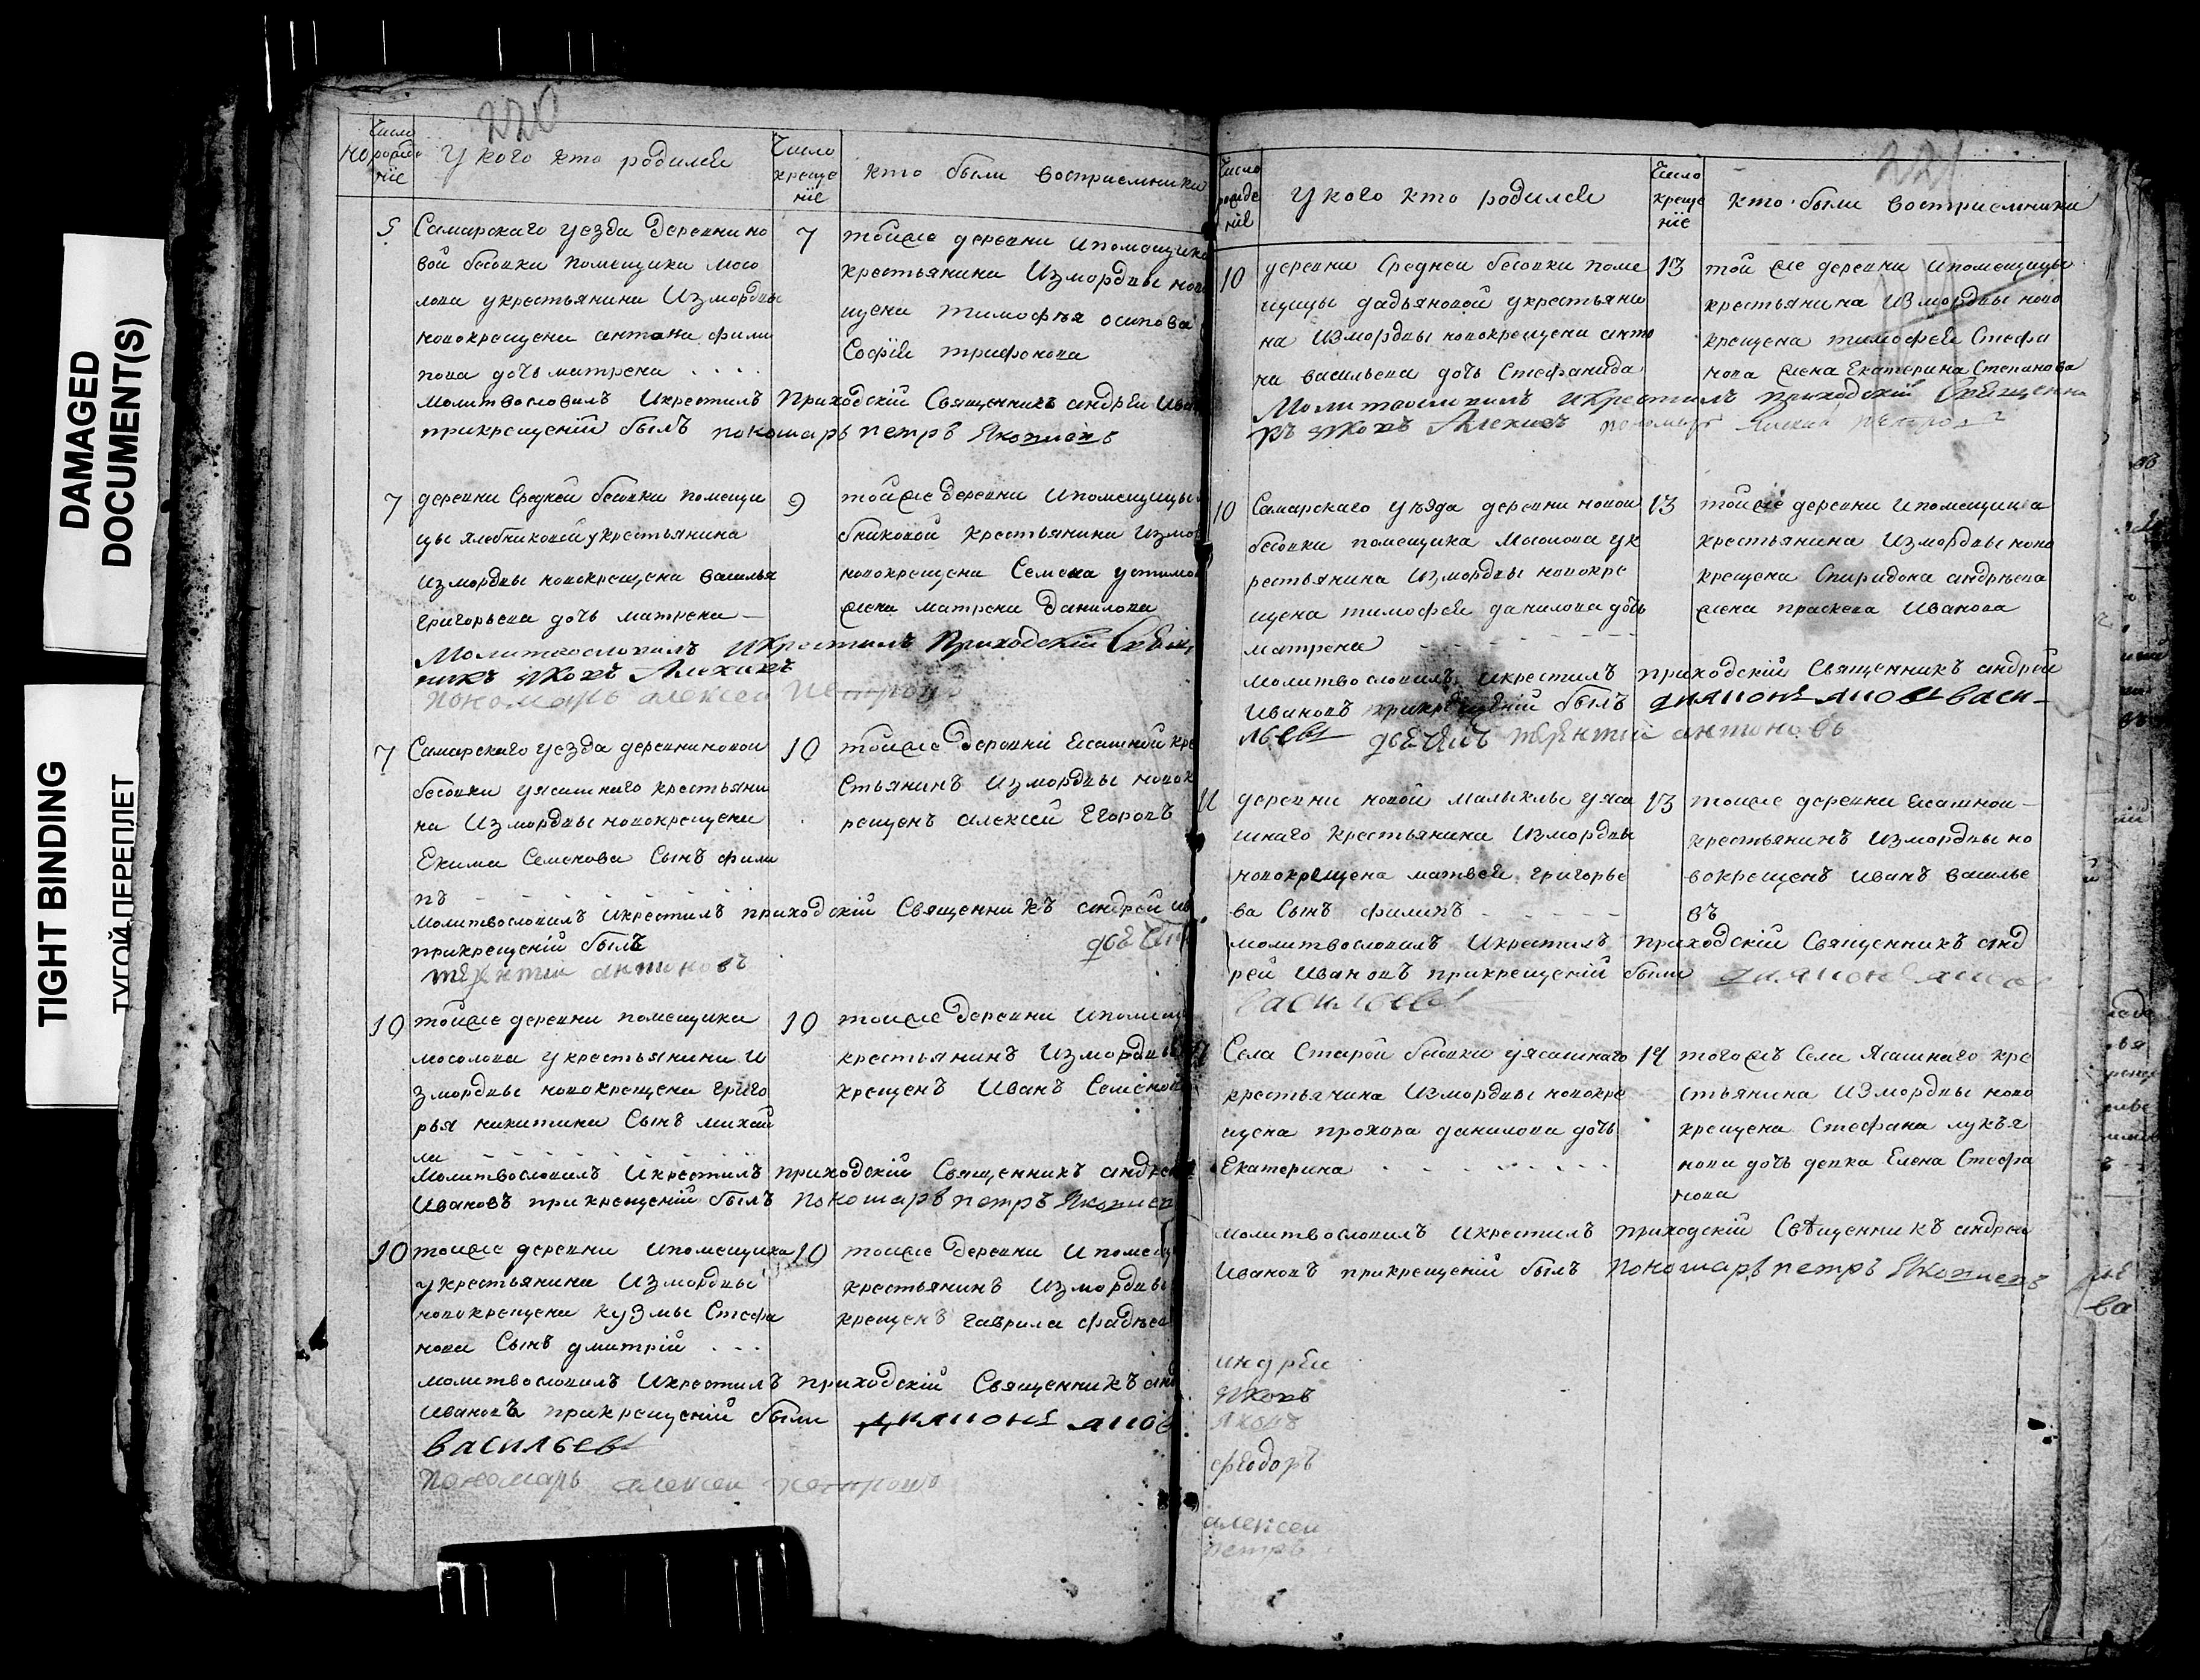 DAMAGED
DOCUMENT(S)
TIGHT BINDING
ТУГОЙ ПЕРЕПЛЕТ
220
Число рожденіе
У кого кто родился
Число крещеніе
кто были восприемники
5
Самарскаго уезда деревни но
вой бесовки помещика Мосо
лова у крестьянина Измордвы
новокрещена антона фили
пова дочь матрена . . . .
7
тойже деревни и помещика
крестьянина Измордвы ново
щена тимофѣя осипова
Софiя трифонова
Молитвословилъ Икрестилъ Приходскiй Священникъ андрѣи Ива
прикрещенiй былъ пономарь петръ Яковлевъ
7
деревни Средней бесовки помещи
цы хлебниковой у крестьянина
измордвы новокрещена василья
григорьева дочь матрена —
9
тойже деревни Ипомещицы
бниковой крестьянина Измор
новокрещена Семена устимо
жена матрена данилова
Молитвословилъ Икрестилъ Приходскiй Священ
никъ Яковъ Алексиевъ
пономарь алексеи петровъ
7
Самарскаго уезда деревни новои
бесовки уясашнаго крестьяни
на Измордвы новокрещена
Екима Семенова Сынъ фили
пъ
10
тойже деревни Ясашной кре
стьянинъ Измордвы новок
рещенъ алексей Егоровъ
Молитвословилъ Икрестилъ приходскiй Священникъ андрей ив
прикрещенiй былъ
терентiи антиповъ
10
тойже деревни помещика
мосолова у крестьянина И
змордвы новокрещена григо
рья никитина Сынъ михаи
ла
10
тойже деревни Ипомещ
крестьянинъ Измордвы
крещенъ Иванъ Семенов
Молитвословилъ Икрестилъ приходскiй Священникъ андрей
Ивановъ прикрещенiй былъ пономарь петръ Яковлев
10
тойже деревни ипомещика
у крестьянина Измордвы
новокрещена кузмы Стефа
нова Сынъ дмитрiй . . .
10
тойже деревни Ипомещ
крестьянинъ Измордвы
крещенъ гаврила фадѣев
молитвословилъ Икрестилъ приходскiй Священникъ анд
Ивановъ прикрещенiй были
васильевъ
пономарь алексеи петровъ
221
Число рожде нiе
У кого кто родился
Число креще нiе
кто были восприемники
10
деревни Средней бесовки поме
щицы дадьяновой у крестьяни
на Измордвы новокрещена анто
на васильева дочь Стефанида
13
той же деревни ипомещицы
крестьянина Измордвы ново
крещена тимофея Стефа
нова жена Екатерина Степанова
Молитвословилъ Икрестилъ приходскiй Священни
къ Яковъ Алексиевъ пономарь алексеи петровъ
10
Самарскаго уѣзда деревни новои
бесовки помещика Мосолова ук
рестьянина Измордвы новокре
щена тимофея данилова дочь
матрена
13
тойже деревни ипомещика
крестьянина Измордвы ново
крещена Спиридона андрѣева
жена праскева Иванова
Молитвословилъ Икрестилъ приходскiй Священникъ андрей
Ивановъ прикрещенiй былъ диаконъ яковъ васи—
льевъ терентiи антиповъ
11
деревни новой малыклы уяса
шнаго крестьянина Измордвы
новокрещена матвея григорье
ва Сынъ филипъ
13
тойже деревни Ясашнои —
крестьянинъ Измордвы но
вокрещенъ Иванъ василье
въ
молитвословилъ Икрестилъ приходскiй Священникъ анд
рей Ивановъ прикрещенiй были диаконъ яков
васильевъ
Села Старой бесовки уясашнаго
крестьянина Измордвы новокре
щена прохора данилова дочь
Екатерина
14
тогожъ села Ясашнаго кре
стьянина Измордвы ново
крещена Стефана лукья
нова дочь девка Елена Стефа
нова
молитвословилъ Икрестилъ приходскiй Свѣщенникъ андрей
Ивановъ прикрещенiй былъ пономарь петръ Яковлевъ
андрей
Яковъ
Яковъ
федоръ
алексеи
петръ
ва